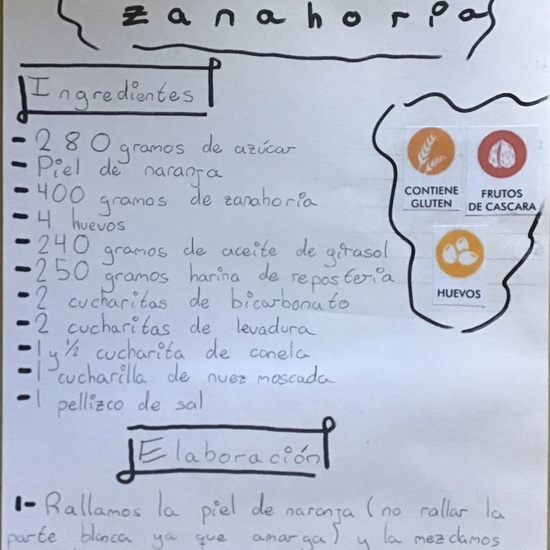 zanahoria
Ingredientes
- 280 gramos de azúcar
- Piel de naranja
- 400 gramos de zanahoria
- 4 huevos
- 240 gramos de aceite de girasol
- 250 gramos harina de repostería
- 2 cucharitas de bicarbonato
- 2 cucharitas de levadura
- 1 y ½ cucharita de canela
- 1 cucharilla de nuez moscada
- 1 pellizco de sal
CONTIENE GLUTEN
FRUTOS DE CASCARA
HUEVOS
Elaboración
1- Rallamos la piel de naranja (no rallar la
parte blanca ya que amarga) y la mezclamos